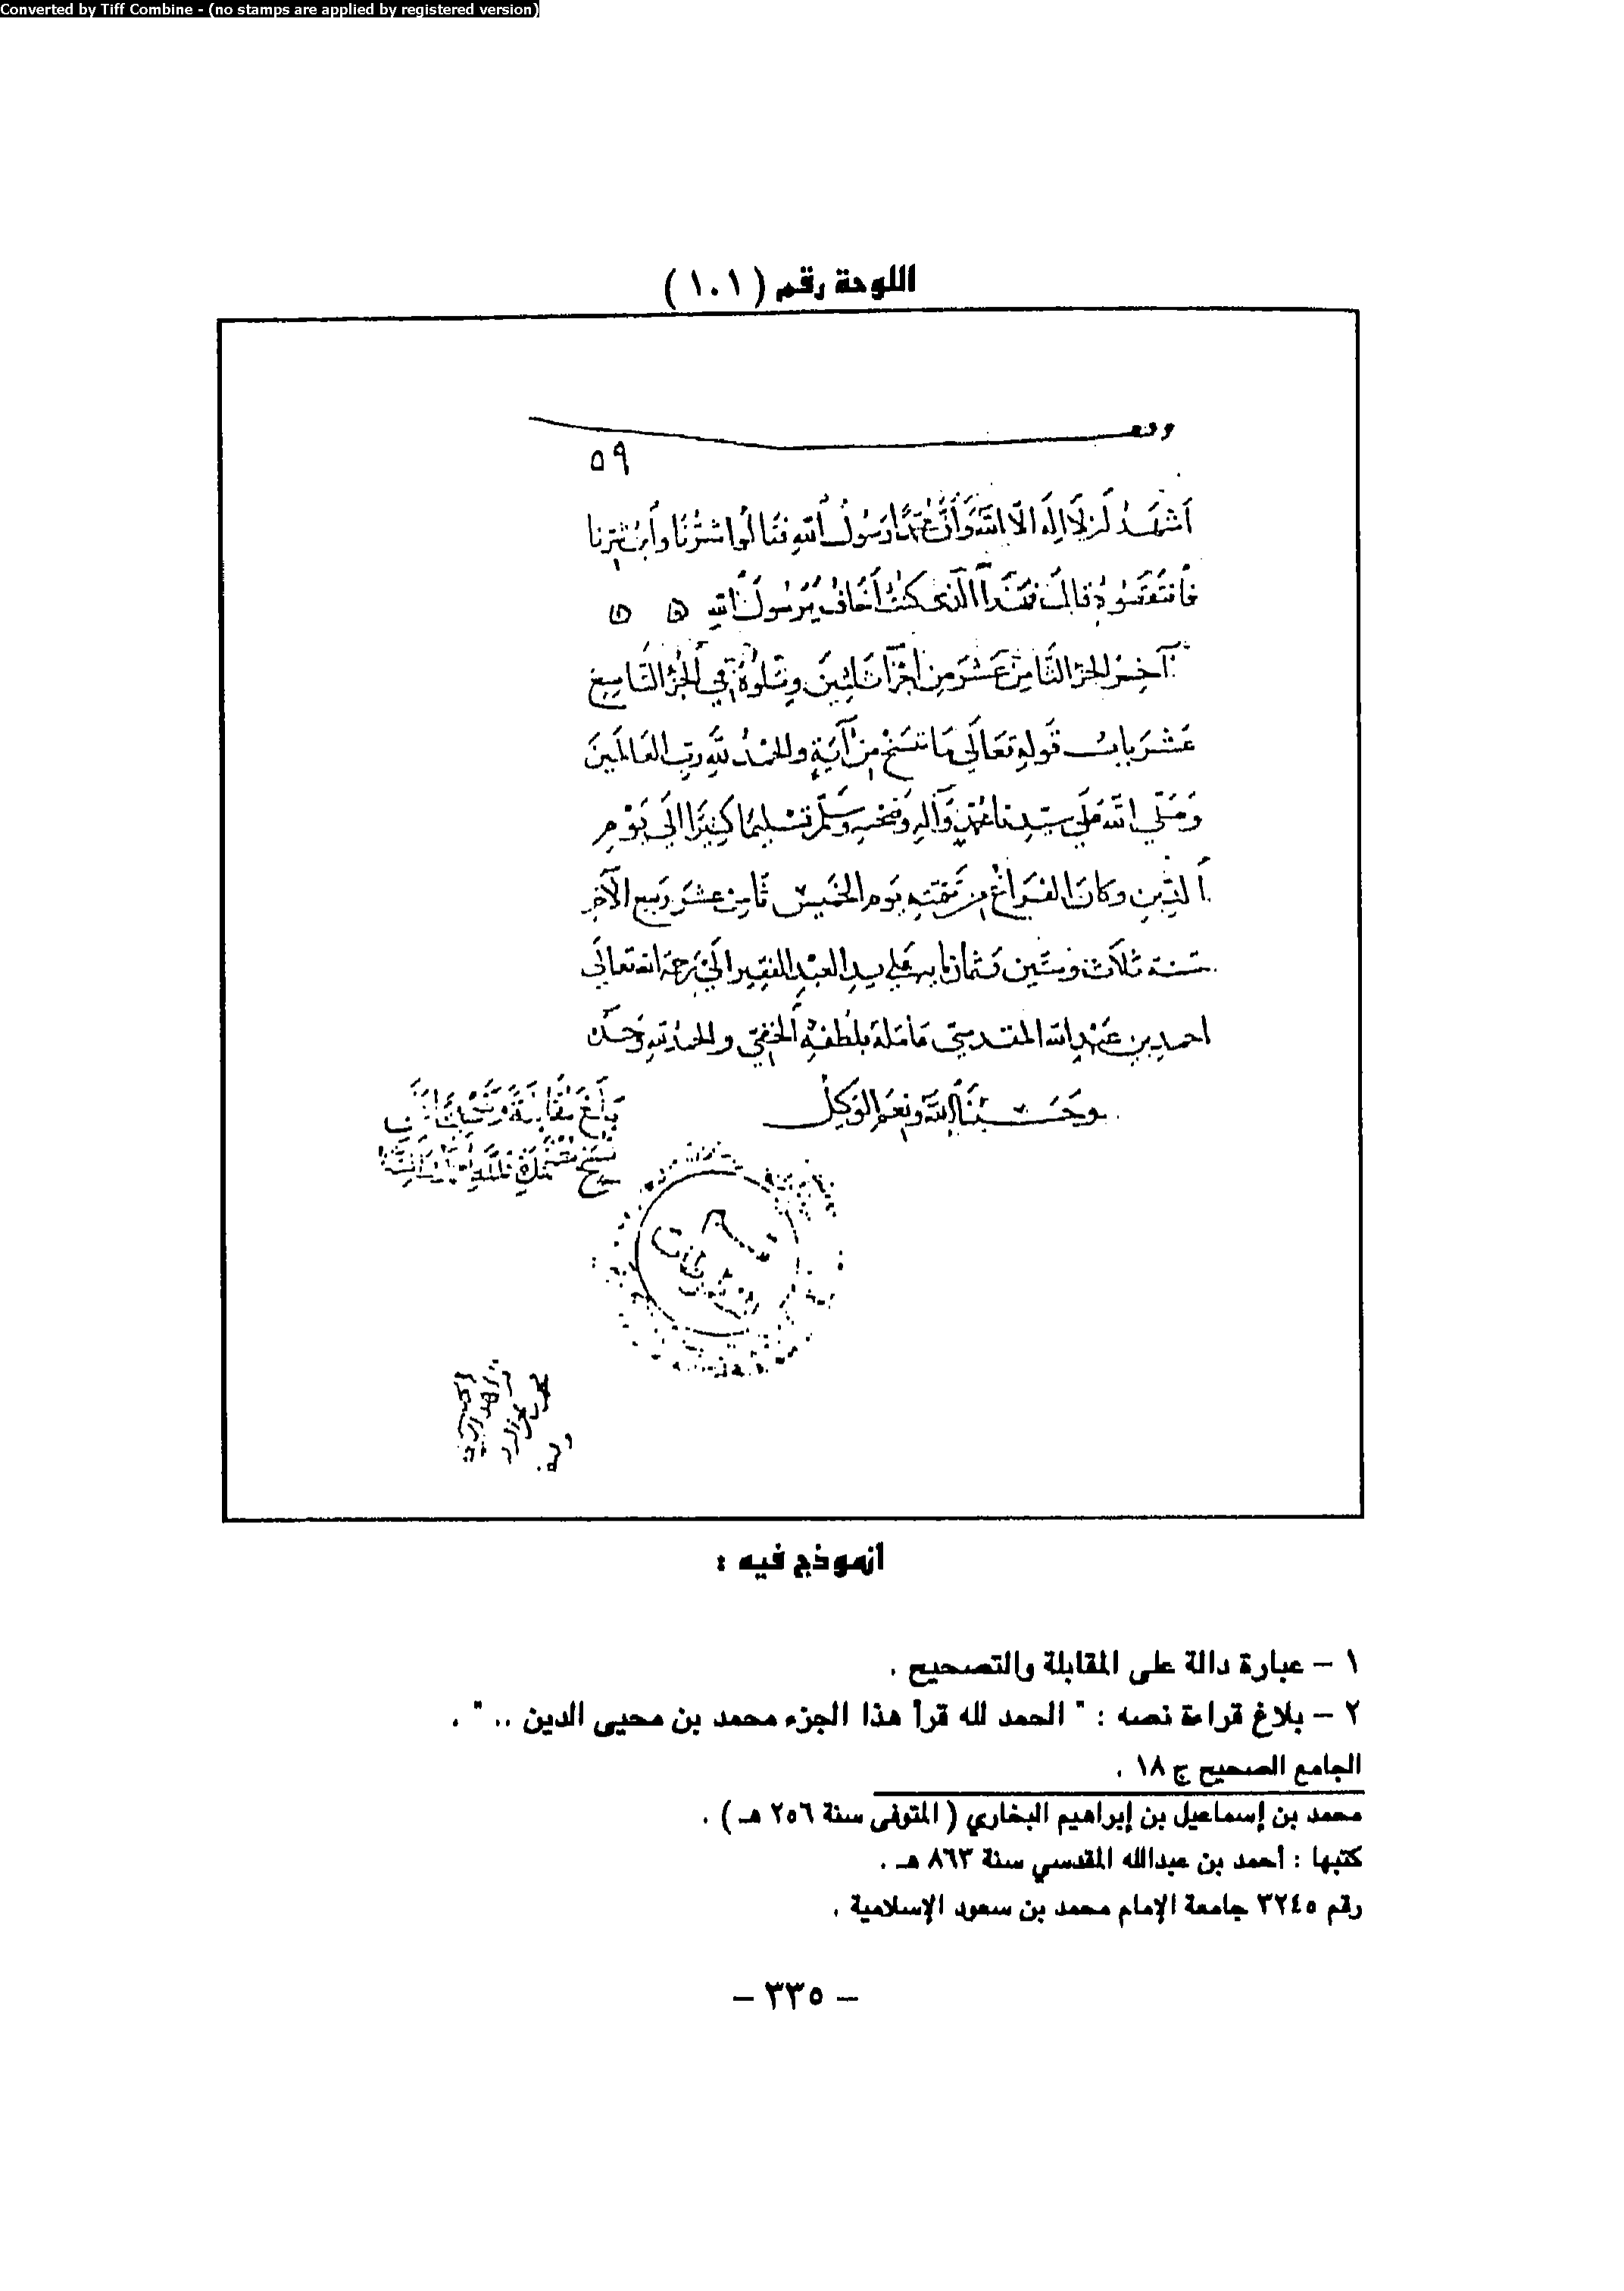 Converted by Tiff Combine - (no stamps are applied by registered version)
اللوحة رقم ( ١٠١ )
وقف
٥٩
أَشْهَدُ أَن لَا إِلَهَ الَّا اللَّهُ وَأَنَّ مُحَمَّدًا رَسُولُ اللهِ فقَالُوا شَرُّنَا وَابْن شَرِّنَا
فَانتَقَصُوهُ قَالَ فَهَذَا الَّذِى كُنْتُ أَخَافُ يَرَسُولَ اللهِ ه ه
آخِرُ الجزؤ الثَّامِن عَشَرَ مِن أَجْزَاء ثَلَثِينَ وَيَتْلُوهُ فِي الجُزْءِ التَّاسِع
عَشَرَ بابُ قَولِهِ تَعَالَى مَا نَنسَخْ مِنْ آيَةٍ والحَمْدُ للهِ رَبِّ العَالَمِينَ
وَصَلَّى اللَّهُ عَلَى سَيِّدِنا مُحَمَّدٍ وَآلِهِ وَصَحْبِهِ وَسَلَّم تَسْلِيمًا كَثِيرًا الَى يَوْمِ
الدِّينِ وكان الفَرَاغُ مِن يَوم الخَمِيس ثَامِن عشر رَبيع الآخر
سَنة ثَلَاث وستِّين وثمان مايه عَلى يدِ العَبْدِ الفقِير الَى رَحمَةِ الله تعَالَى
احمد بن عَبْدِ الله المقدسيّ عَامَلَهُ بلُطْفِهِ الخَفِيّ والحمدُ للهِ وَحدَه
وَحَسْبُنَا اللَّهُ وَنِعْمَ الوَكِيل
بَلَغَ مُقَابَلَةً
انموذج فيه :
١ – عبارة دالة على المقابلة والتصحيح .
٢ – بلاغ قراءة نصه : " الحمد لله قرأ هذا الجزء محمد بن محيى الدين .. " .
الجامع الصحيح ج ١٨ .
محمد بن إسماعيل بن إبراهيم البخاري ( المتوفى سنة ٢٥٦ هـ ) .
كتبها : أحمد بن عبدالله المقدسي سنة ٨٦٣ هـ .
رقم ٣٢٤٥ جامعة الإمام محمد بن سعود الإسلامية .
– ٣٣٥ –